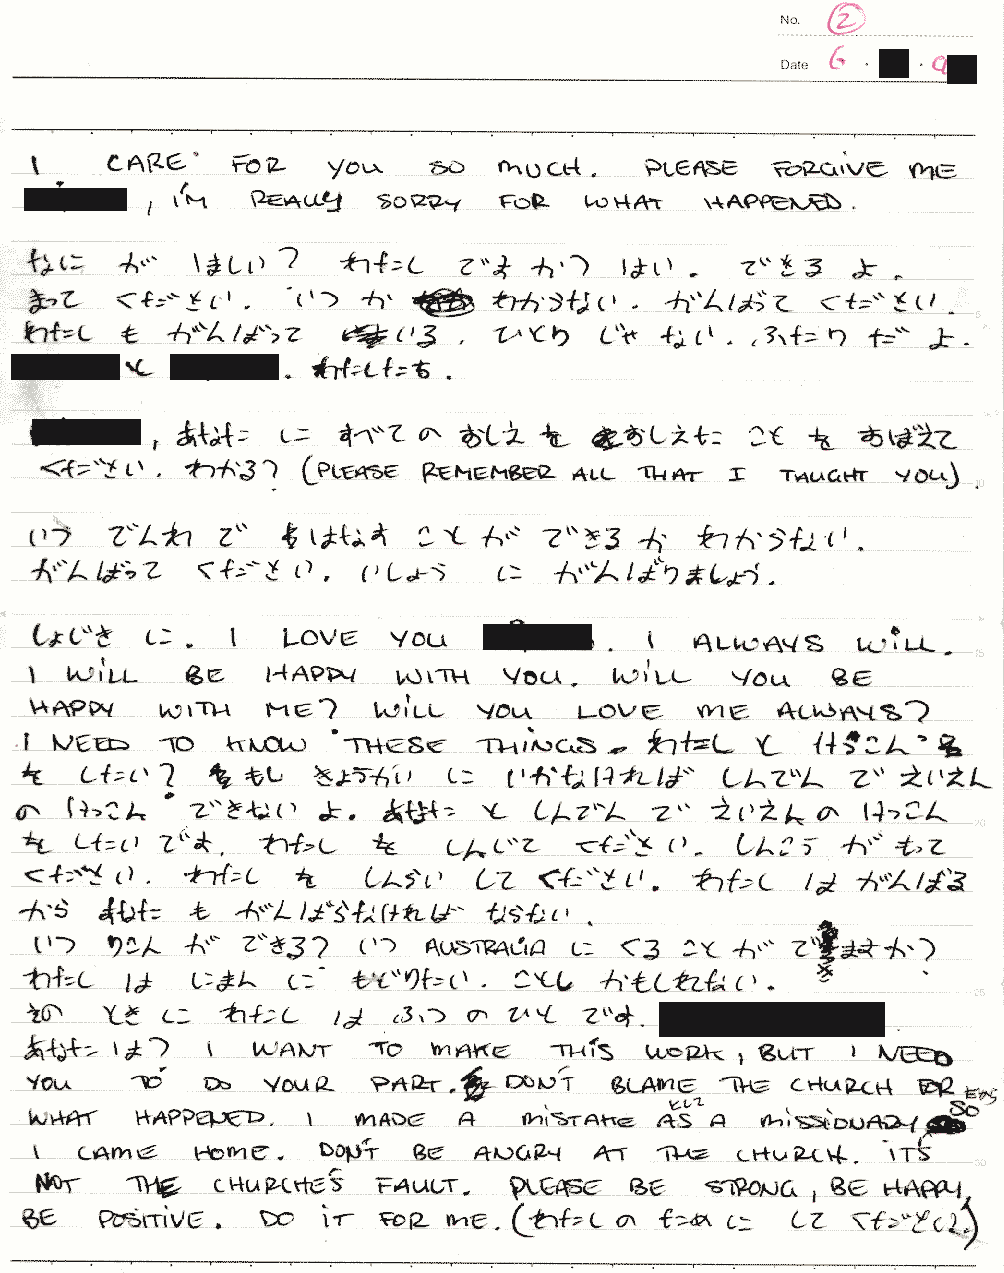 No. 2
Date 6 . . 9
I CARE FOR YOU SO MUCH. PLEASE FORGIVE ME
, I'M REALLY SORRY FOR WHAT HAPPENED.
なに が ほしい? わたし ですか? はい. できる よ.
まって ください. いつ か わからない. がんばって ください.
わたし も がんばって いる. ひとり じゃ ない. ふたり だ よ.
と . わたしたち.
, あなた に すべて の おしえ を おしえた こと を おぼえて
ください. わかる? (PLEASE REMEMBER ALL THAT I TAUGHT YOU).
いつ でんわ で はなす こと が できる か わからない.
がんばって ください. いしょう に がんばりましょう.
しょじき に. I LOVE YOU . I ALWAYS WILL.
I WILL BE HAPPY WITH YOU. WILL YOU BE
HAPPY WITH ME? WILL YOU LOVE ME ALWAYS?
I NEED TO KNOW THESE THINGS. わたし と けっこん
を したい? もし きょうかい に いかなければ しんでん で えいえん
の けっこん できない よ. あなた と しんでん で えいえん の けっこん
を したい です. わたし を しんじて ください. しんこう が もって
ください. わたし を しんらい して ください. わたし は がんばる
から あなた も がんばらなければ ならない.
いつ りこん が できる? いつ AUSTRALIA に くる こと が で ますか?
わたし は にほん に もどりたい. ことし かもしれない.
その とき に わたし は ふつ の ひと です.
あなた は? I WANT TO MAKE THIS WORK, BUT I NEED
YOU TO DO YOUR PART. DON'T BLAME THE CHURCH FOR
WHAT HAPPENED. I MADE A MISTAKE AS として A MISSIONARY SO だから
I CAME HOME. DON'T BE ANGRY AT THE CHURCH. IT'S
NOT THE CHURCHE'S FAULT. PLEASE BE STRONG, BE HAPPY,
BE POSITIVE. DO IT FOR ME. (わたし の ため に して ください.)